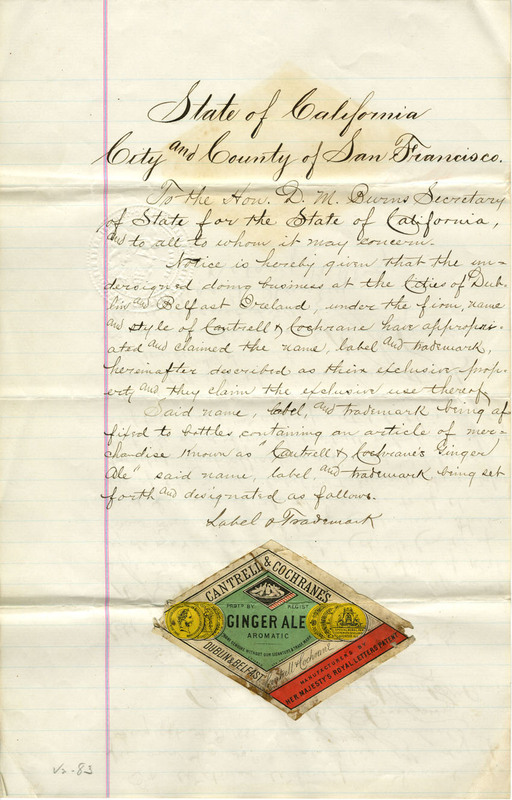 State of California
City and County of San Francisco.
To the Hon. D. M. Burns Secretary
of State for the State of California,
and to all to whom it may concern.
Notice is hereby given that the un-
dersigned doing business at the Cities of Dub-
lin and Belfast Ireland, under the firm, name
and style of Cantrell & Cochrane have appropri-
ated and claimed the name, label and trademark,
hereinafter described as their exclusive prop-
erty and they claim the exclusive use thereof
Said name, label, and trademark being af
fixed to bottles containing an article of mer-
chandise known as "Cantrell & Cochrane's Ginger
Ale" said name, label and trademark being set
forth and designated as follows.
Label & Trademark
CANTRELL & COCHRANES
PROTD BY REGIST
GINGER ALE
AROMATIC
NONE GENUINE WITHOUT OUR SIGNATURE & TRADE MARK
DUBLIN & BELFAST
Cantrell & Cochrane
MANUFACTURERS BY
HER MAJESTY'S ROYAL LETTERS PATENT
V2-83